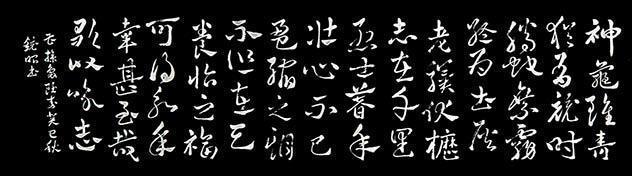 神龜雖壽
猶有竟時
騰蛇乘霧
終為土灰
老驥伏櫪
志在千里
烈士暮年
壯心不已
盈縮之期
不但在天
養怡之福
可得永年
幸甚至哉
歌以詠志
操龜雖壽癸巳秋
書